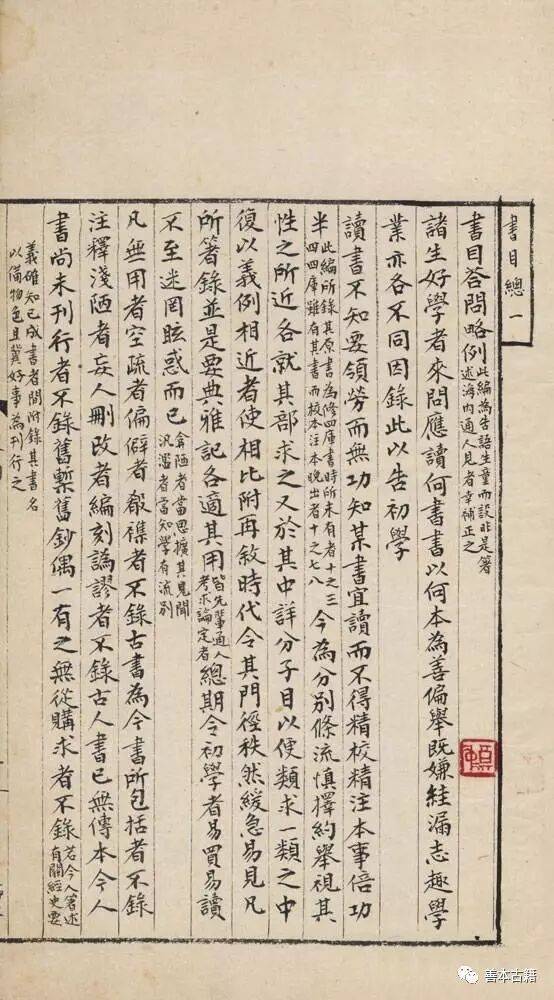 書目總一
書目答問略例此編為告語生童而設非是著述海內通人見者幸補正之
諸生好學者來問應讀何書書以何本為善偏舉既嫌絓漏志趣學
業亦各不同因錄此以告初學
讀書不知要領勞而無功知某書宜讀而不得精校精注本事倍功
半此編所錄其原書為修四庫書時所未有者十之三四四庫雖有其書而校本注本晚出者十之七八今為分別條流慎擇約舉視其
性之所近各就其部求之又於其中詳分子目以便類求一類之中
復以義例相近者使相比附再敘時代令其門徑秩然緩急易見凡
所著錄並是要典雅記各適其用皆先輩通人考求論定者總期令初學者易買易讀
不至迷罔眩惑而已弇陋者當思擴其見聞汎濫者當知學有流別
凡無用者空疏者偏僻者殽襍者不錄古書為今書所包括者不錄
注釋淺陋者妄人刪改者編刻譌謬者不錄古人書已無傳本今人
書尚未刊行者不錄舊槧舊鈔偶一有之無從購求者不錄若今人著述有關經史要
義確知已成書者間附錄其書名以備物色且冀好事為刊行之
善本古籍